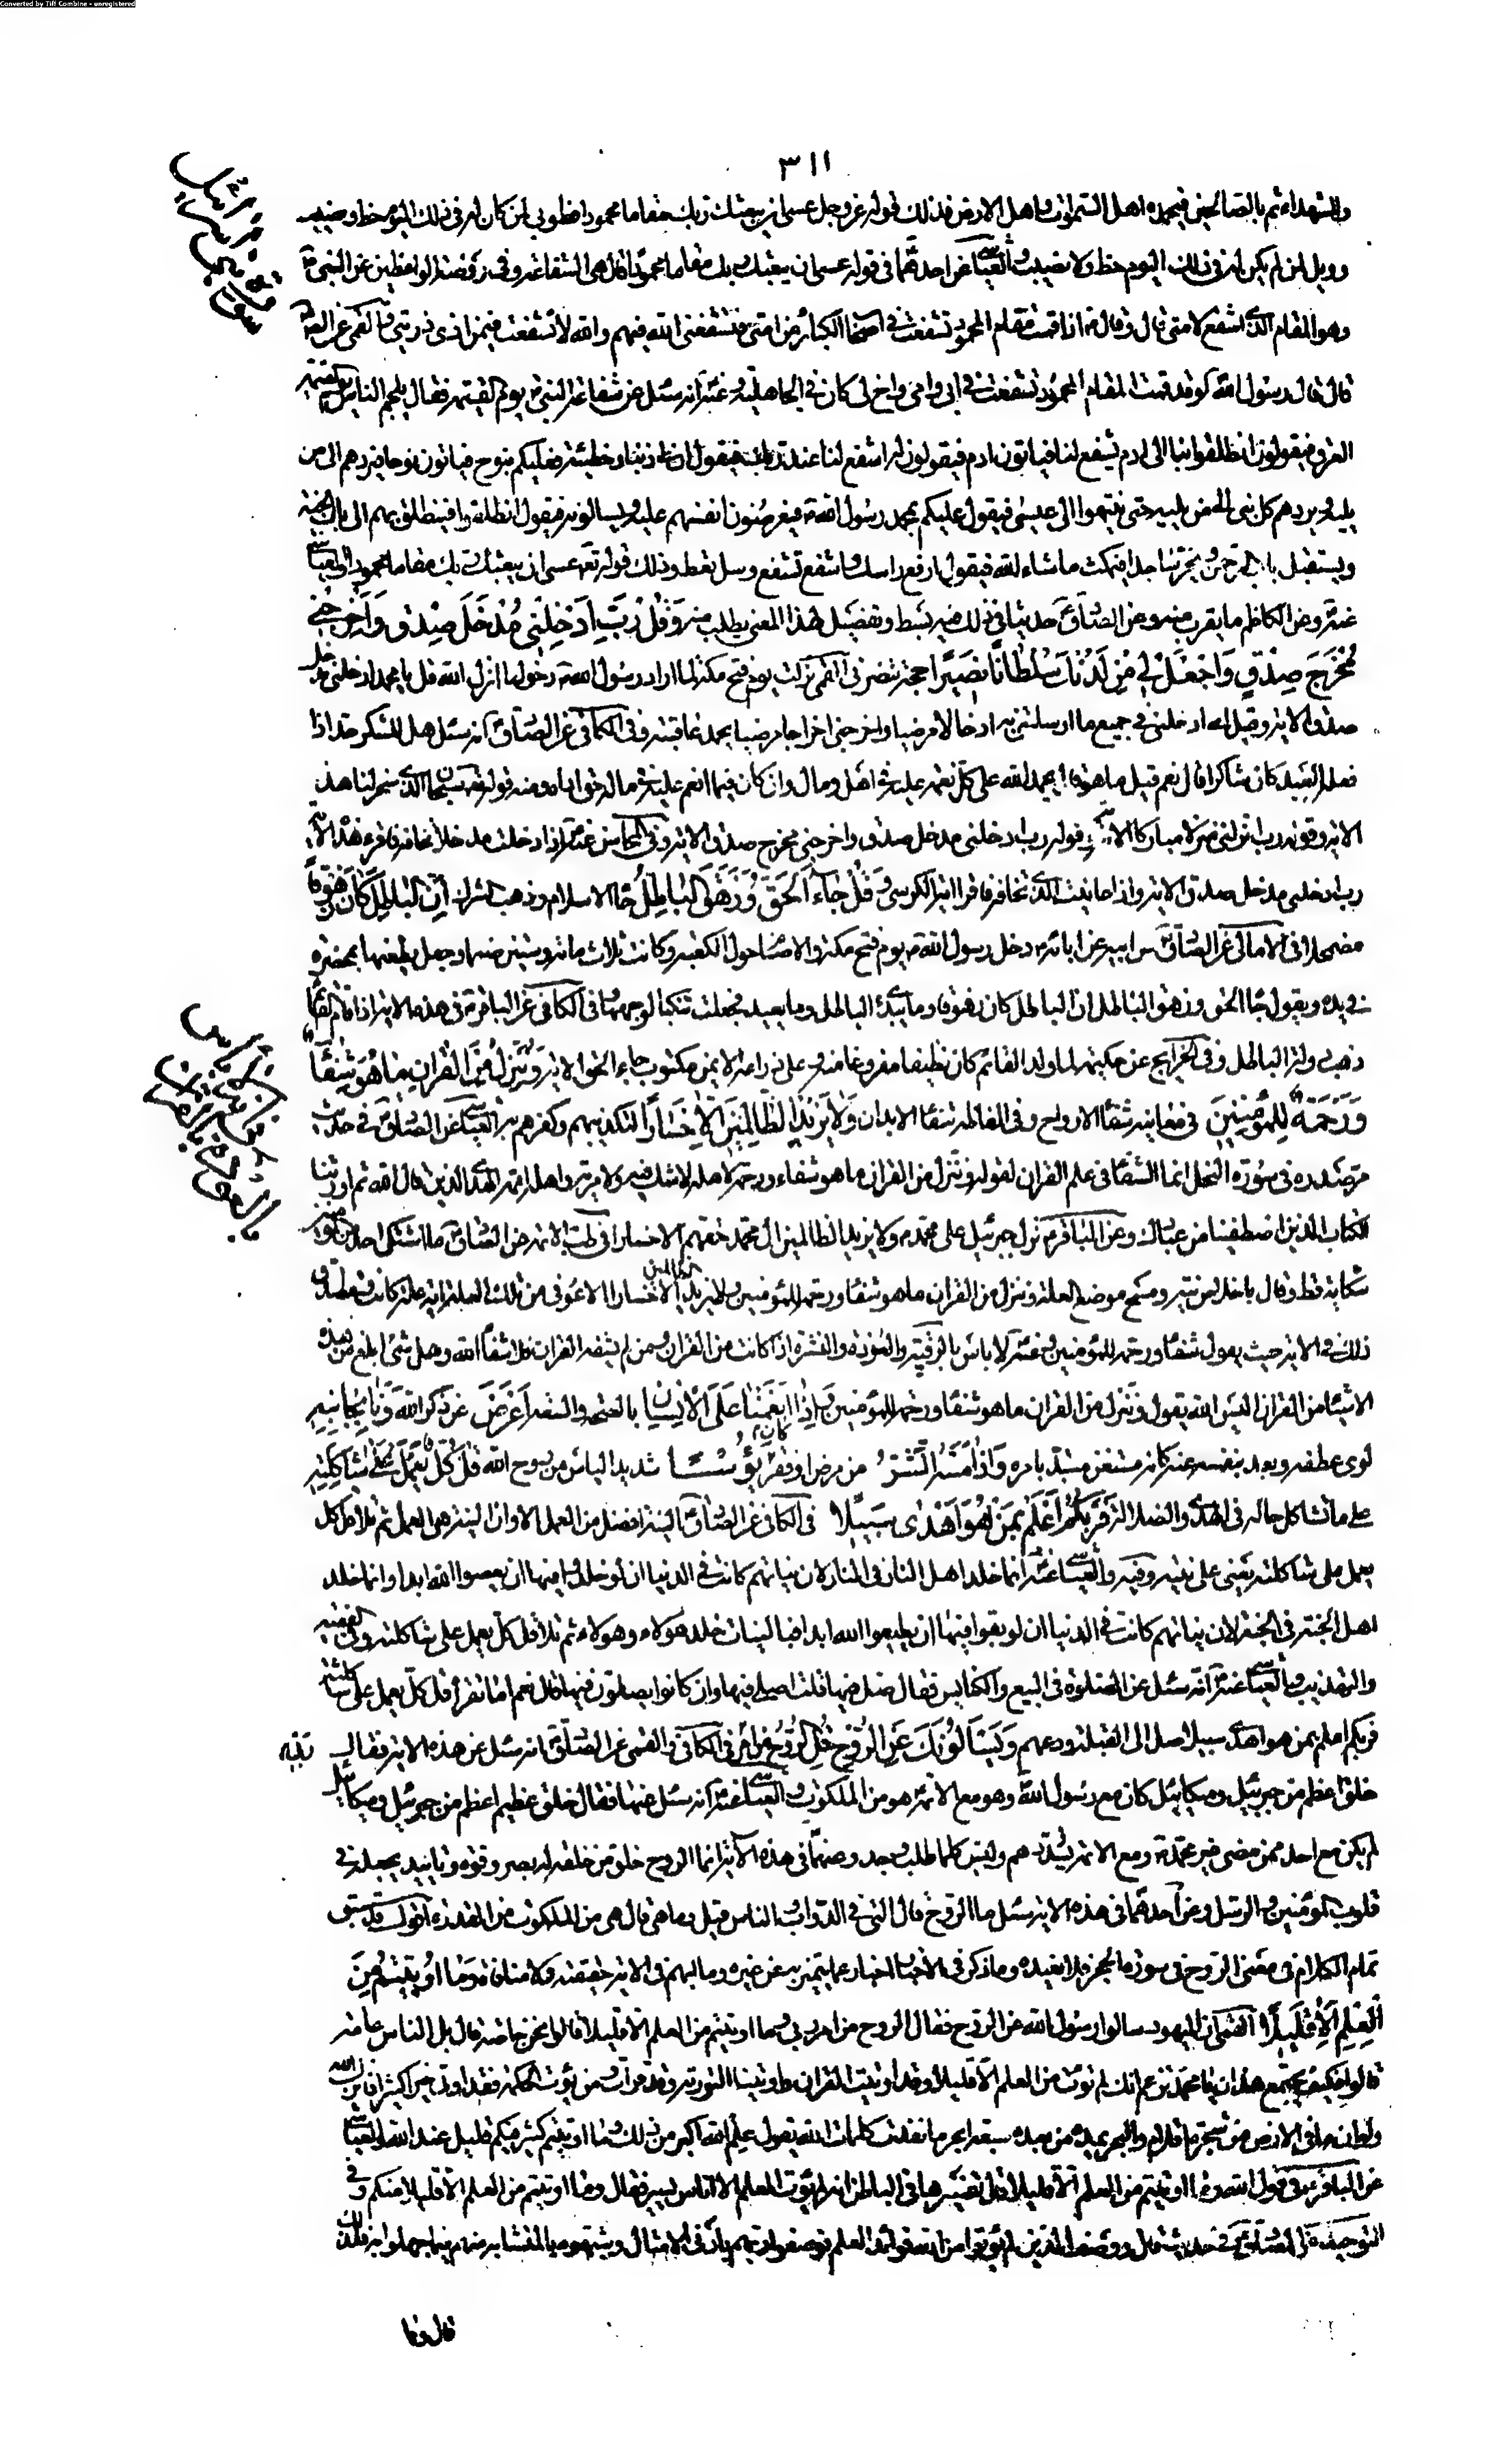 Converted by Tiff Combine - unregistered
٣١١
والشهداء ثم بالصالحين فيحمده اهل السموات واهل الارض فذلك قوله عز وجل عسى ان يبعثك ربك مقاما محمودا فطوبى لمن كان له فى ذلك اليوم حظ ونصيب
وويل لمن لم يكن له فى ذلك اليوم حظ ولا نصيب والعياشى عن احدهما فى قوله عسى ان يبعثك ربك مقاما محمودا قال هى الشفاعة وفى روضة الواعظين عن النبى
وهو المقام الذى اشفع لامتى قال وقال اذا قمت المقام المحمود تشفعت فى اصحاب الكبائر من امتى فيشفعنى الله فيهم والله لا تشفعت فيمن اذى ذريتى والقمى عن الصادق
قال قال رسول الله لو قد قمت المقام المحمود لشفعت فى ابى وامى واخ لى كان فى الجاهلية وعنه انه سئل عن شفاعة النبى يوم القيمة فقال يلجم الناس يوم القيمة
العرق فيقولون انطلقوا بنا الى ادم يشفع لنا فياتون ادم فيقولون له اشفع لنا عند ربك فيقول ان لى ذنبا وخطيئة فعليكم بنوح فياتون نوحا فيردهم الى من
يليه ويردهم كل نبى الى من يليه حتى ينتهوا الى عيسى فيقول عليكم بمحمد رسول الله فيعرضون انفسهم عليه ويسالونه فيقول انطلقوا فينطلق بهم الى باب الجنة
ويستقبل باب الرحمن ويخر ساجدا فيمكث ما شاء الله فيقول ارفع راسك واشفع تشفع وسل تعط وذلك قوله تعالى عسى ان يبعثك ربك مقاما محمودا والعياشى
عنه وعن الكاظم ما يقرب منه وعن الصادق حديثا فى ذلك فيه بسط وتفصيل لهذا المعنى يطلب منه وَقُلْ رَبِّ اَدْخِلْنِى مُدْخَلَ صِدْقٍ وَاَخْرِجْنِى
مُخْرَجَ صِدْقٍ وَاجْعَلْ لِى مِنْ لَدُنْكَ سُلْطَانًا نَصِيرًا حجة تنصرنى القمى نزلت يوم فتح مكة لما اراد رسول الله دخولها انزل الله قل يا محمد ادخلنى مدخل
صدق الاية وقيل اى ادخلنى فى جميع ما ارسلتنى به ادخالا مرضيا واخرجنى اخراجا مرضيا يحمد عاقبته وفى الكافى عن الصادق انه سئل هل للشكر حد اذا
فعله العبد كان شاكرا قال نعم قيل ما هو قال يحمد الله على كل نعمة عليه فى اهل ومال وان كان فيما انعم عليه فى ماله حق اداه ومنه قوله تعالى سبحان الذى سخر لنا هذا
الاية وقوله رب انزلنى منزلا مباركا الاية وقوله رب ادخلنى مدخل صدق واخرجنى مخرج صدق الاية وفى المحاسن عنه اذا دخلت مدخلا تخافه فاقرء هذه الاية
رب ادخلنى مدخل صدق الاية واذا عاينت الذى تخافه فاقرا اية الكرسى وَقُلْ جَاءَ الْحَقُّ وَزَهَقَ الْبَاطِلُ جاء الاسلام وذهب الشرك اِنَّ الْبَاطِلَ كَانَ زَهُوقًا
مضمحلا فى الامالى عن الصادق عن ابيه عن ابائه دخل رسول الله يوم فتح مكة والاصنام حول الكعبة وكانت ثلاث مائة وستين صنما وجعل يطعنها بمخصرة
فى يده ويقول جاء الحق وزهق الباطل ان الباطل كان زهوقا وما يبدئ الباطل وما يعيد فجعلت تنكب لوجهها فى الكافى عن الباقر فى هذه الاية اذا قام القائم
ذهبت دولة الباطل وفى الخرايج عن حكيمة لما ولد القائم كان نظيفا مفروغا منه وعلى ذراعه الايمن مكتوب جاء الحق الاية وَنُنَزِّلُ مِنَ الْقُرْاٰنِ مَا هُوَ شِفَاءٌ
وَرَحْمَةٌ لِلْمُؤْمِنِينَ فى معانيه شفاء الارواح وفى الفاظه شفاء الابدان وَلَا يَزِيدُ الظَّالِمِينَ اِلَّا خَسَارًا لتكذيبهم وكفرهم به العياشى عن الصادق فى حديث
مر صدره فى سورة النحل انما الشفاء فى علم القران لقوله وننزل من القران ما هو شفاء ورحمة لاهله لا شك فيه ولا مرية واهله ائمة الهدى الذين قال الله ثم اورثنا
الكتاب الذين اصطفينا من عبادنا وعن الباقر نزل جبرئيل على محمد ولا يزيد الظالمين ال محمد حقهم الا خسارا فى طب الائمة عن الصادق ما اشتكى احد من المؤمنين
شكاية قط وقال باخلاص نية ومسح موضع العلة وننزل من القران ما هو شفاء ورحمة للمؤمنين ولا يزيد الظالمين الا خسارا الا عوفى من تلك العلة اية علة كانت ومصداق
ذلك فى الاية حيث يقول شفاء ورحمة للمؤمنين وعنه لا باس بالرقية والعوذة والنشرة اذا كانت من القران ومن لم يشفه القران فلا شفاه الله وهل شئ ابلغ من هذه
الاشياء من القران اليس الله يقول وننزل من القران ما هو شفاء ورحمة للمؤمنين وَاِذَا اَنْعَمْنَا عَلَى الْاِنْسَانِ بالصحة والسعة اَعْرَضَ عن ذكر الله وَنَاٰ بِجَانِبِهِ
لوى عطفه وبعد بنفسه عنه كانه مستغن مستبد بامره وَاِذَا مَسَّهُ الشَّرُّ من مرض او فقر كَانَ يَؤُسًا شديد الياس من روح الله قُلْ كُلٌّ يَعْمَلُ عَلَى شَاكِلَتِهِ
على ما تشاكل حاله فى الهدى والضلالة فَرَبُّكُمْ اَعْلَمُ بِمَنْ هُوَ اَهْدَى سَبِيلًا فى الكافى عن الصادق النية افضل من العمل الا وان النية هى العمل ثم تلا قل كل
يعمل على شاكلته يعنى على نيته وفيه والعياشى عنه انما خلد اهل النار فى النار لان نياتهم كانت فى الدنيا ان لو خلدوا فيها ان يعصوا الله ابدا وانما خلد
اهل الجنة فى الجنة لان نياتهم كانت فى الدنيا ان لو بقوا فيها ان يطيعوا الله ابدا فبالنيات خلد هولاء وهولاء ثم تلا قل كل يعمل على شاكلته وفى الفقيه
والتهذيب والعياشى عنه انه سئل عن الصلوة فى البيع والكنايس فقال صل فيها قلت اصلى فيها وان كانوا يصلون فيها قال نعم اما تقرأ قل كل يعمل على شاكلته
فربكم اعلم بمن هو اهدى سبيلا صل الى القبلة ودعهم وَيَسْأَلُونَكَ عَنِ الرُّوحِ قُلِ الرُّوحُ مِنْ اَمْرِ رَبِّى فى الكافى والقمى عن الصادق انه سئل عن هذه الاية فقال
خلق اعظم من جبرئيل وميكائيل كان مع رسول الله وهو مع الائمة هو من الملكوت والعياشى عنه انه سئل عنها فقال خلق عظيم اعظم من جبرئيل وميكائيل
لم يكن مع احد ممن مضى غير محمد ومع الائمة يسددهم وليس كلما طلب وجد وعنهما فى هذه الاية انما الروح خلق من خلقه له بصر وقوة وتاييد يجعله فى
قلوب المؤمنين والرسل وعن احدهما فى هذه الاية سئل ما الروح قال التى فى الدواب والناس قيل وما هى قال هى من الملكوت من القدرة اقول قد سبق
تمام الكلام فى معنى الروح فى سورة الحجر فلا نعيده وما ذكر فى الاخبار اخبار عما يتميز به عن غيره وما ابهم فى الاية حقيقته فلا منافاة وَمَا اُوتِيتُمْ مِنَ
الْعِلْمِ اِلَّا قَلِيلًا القمى ان اليهود سالوا رسول الله عن الروح فقال الروح من امر ربى وما اوتيتم من العلم الا قليلا قالوا نحن خاصة قال بل الناس عامة
قالوا فكيف يجتمع هذان يا محمد تزعم انك لم تؤت من العلم الا قليلا وقد اوتيت القران واوتينا التورية وقد قرات ومن يؤت الحكمة فقد اوتى خيرا كثيرا فانزل الله
ولو ان ما فى الارض من شجرة اقلام والبحر يمده من بعده سبعة ابحر ما نفدت كلمات الله يقول علم الله اكبر من ذلك وما اوتيتم كثير فيكم قليل عند الله العياشى
عن الباقر فى قول الله وما اوتيتم من العلم الا قليلا قال تفسيرها فى الباطن انه لم يؤت العلم الا اناس يسير فقال وما اوتيتم من العلم الا قليلا منكم وفى
التوحيد عن الصادق فى حديث قال ووصف الذين لم يؤتوا من الله فوائد العلم فوصفوا ربهم بادنى الامثال وشبهوه بالمتشابه منهم فيما جهلوا به فلذلك
قال وما